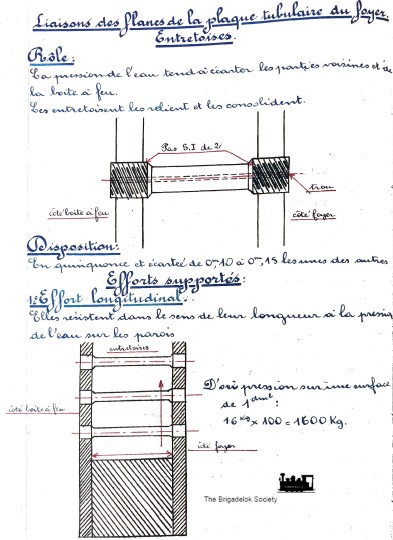 Liaisons des flancs de la plaque tubulaire du foyer.
Entretoises.
Rôle:
La pression de l'eau tend à écarter les parties voisines et de
la boite à feu.
Les entretoises les relient et les consolident.
Pas S.I de 2
trou
côté boite à feu
côté foyer
Disposition:
En quinquonce et écarté de 0m,10 à 0m,15 les unes des autres
Efforts supportés:
1º Effort longitudinal.
Elles résistent dans le sens de leur longueur à la pression
de l'eau sur les parois
entretoises
D'où pression sur une surface
de 1 dm2:
16 Kg x 100 = 1600 Kg.
côté boite à feu
côté foyer
The Brigadelok Society